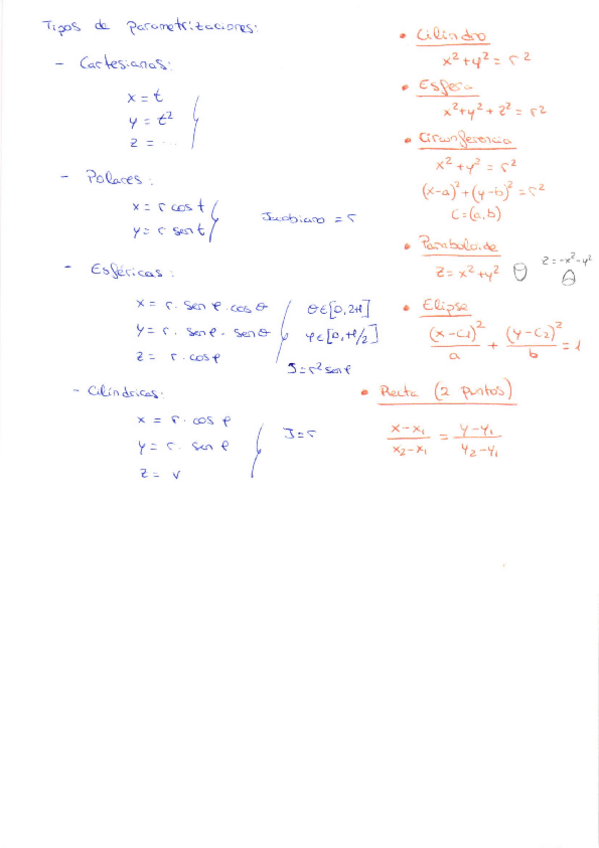 Tipos de parametrizaciones:
- Cartesianas:
x = t
y = t²
z = ...
- Polares:
x = r cos t
y = r sen t
Jacobiano = r
- Esféricas:
x = r · sen φ · cos θ
y = r · sen φ · sen θ
z = r · cos φ
θ∈[0,2π]
φ∈[0,π/2]
J = r² sen φ
- Cilíndricas:
x = r · cos φ
y = r · sen φ
z = v
J = r
• Cilindro
x² + y² = r²
• Esfera
x² + y² + z² = r²
• Circunferencia
x² + y² = r²
(x-a)² + (y-b)² = r²
C = (a,b)
• Paraboloide
z = x² + y²
z = -x² - y²
• Elipse
(x-c₁)²/a + (y-c₂)²/b = 1
• Recta (2 puntos)
x-x₁/x₂-x₁ = y-y₁/y₂-y₁